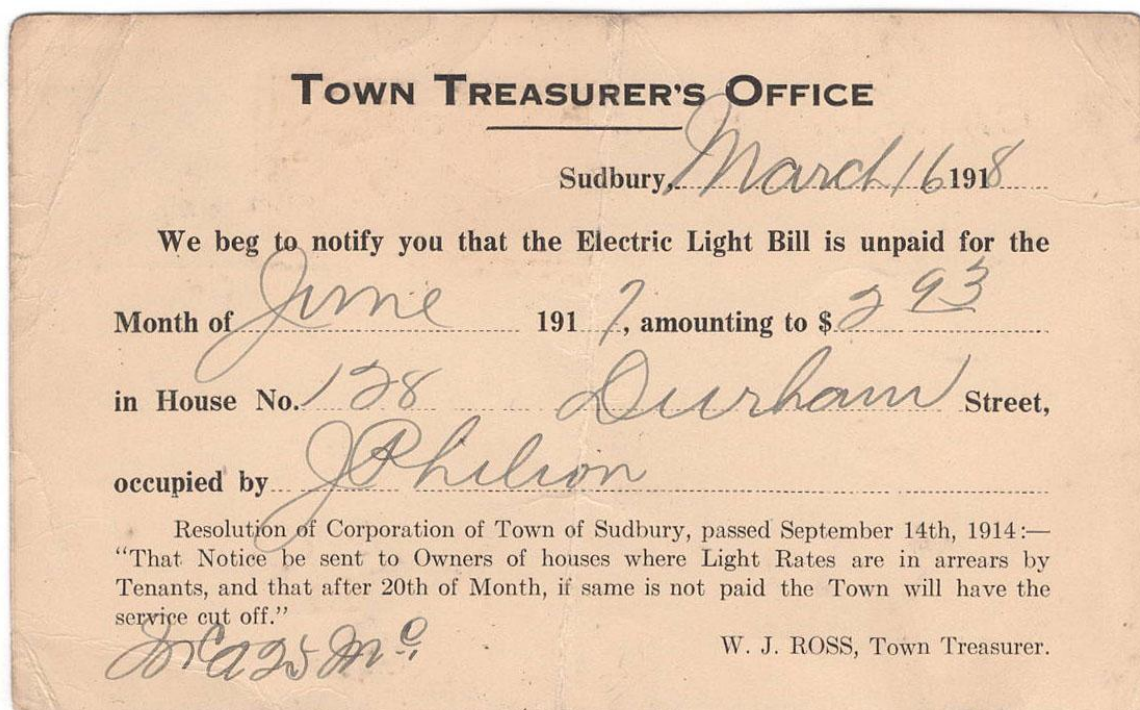 TOWN TREASURER'S OFFICE
Sudbury, March 16 1918
We beg to notify you that the Electric Light Bill is unpaid for the
Month of June 1917, amounting to $ 2 93
in House No. 128 Durham Street,
occupied by J Philion
Resolution of Corporation of Town of Sudbury, passed September 14th, 1914:—
“That Notice be sent to Owners of houses where Light Rates are in arrears by
Tenants, and that after 20th of Month, if same is not paid the Town will have the
service cut off.”
W. J. ROSS, Town Treasurer.